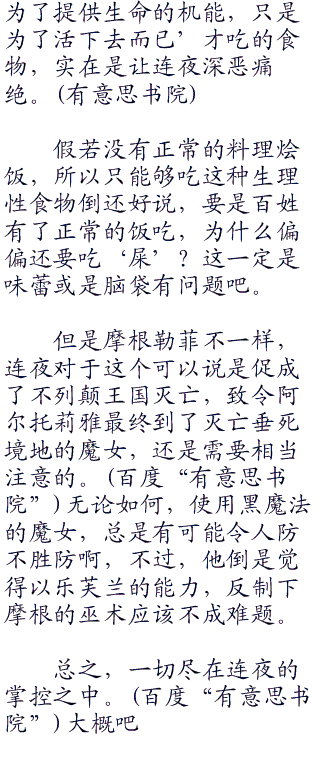 为了提供生命的机能，只是
为了活下去而已’才吃的食
物，实在是让连夜深恶痛
绝。(有意思书院)
假若没有正常的料理烩
饭，所以只能够吃这种生理
性食物倒还好说，要是百姓
有了正常的饭吃，为什么偏
偏还要吃‘屎’？这一定是
味蕾或是脑袋有问题吧。
但是摩根勒菲不一样，
连夜对于这个可以说是促成
了不列颠王国灭亡，致令阿
尔托莉雅最终到了灭亡垂死
境地的魔女，还是需要相当
注意的。(百度“有意思书
院”)无论如何，使用黑魔法
的魔女，总是有可能令人防
不胜防啊，不过，他倒是觉
得以乐芙兰的能力，反制下
摩根的巫术应该不成难题。
总之，一切尽在连夜的
掌控之中。(百度“有意思书
院”)大概吧